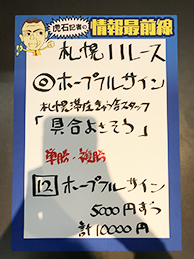 虎石記者の
情報最前線
札幌11レース
◎ホープフルサイン
札幌滞在き合スタッフ
「具合よさそう」
単勝・複勝
12ホープフルサイン
5000円ずつ
計10000円